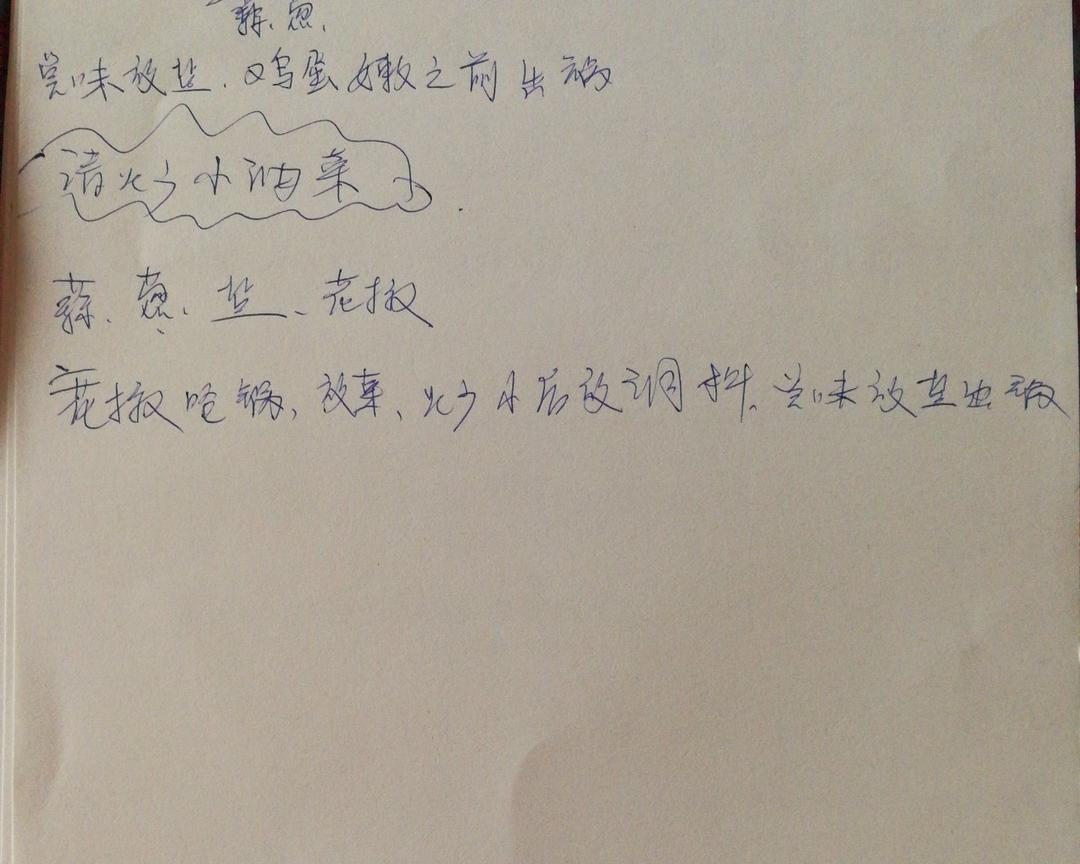 蒜、葱、
尝味放盐.鸡蛋嫩之前出锅
清炒小油菜
蒜、葱、盐、花椒
花椒呛锅、放菜、炒小后放调料、尝味放盐出锅